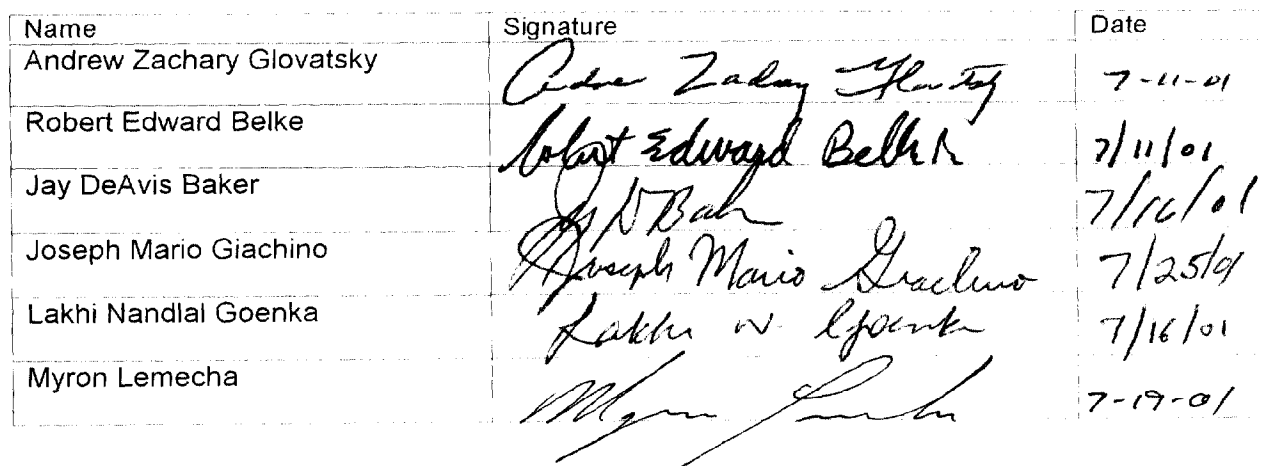 Name Signature Date
Andrew Zachary Glovatsky Andrew Zachary Glovatsky 7-11-01
Robert Edward Belke Robert Edward Belke Jr 7/11/01
Jay DeAvis Baker Jay D Baker 7/16/01
Joseph Mario Giachino Joseph Mario Giachino 7/25/01
Lakhi Nandlal Goenka Lakhi N. Goenka 7/16/01
Myron Lemecha Myron Lemecha 7-19-01